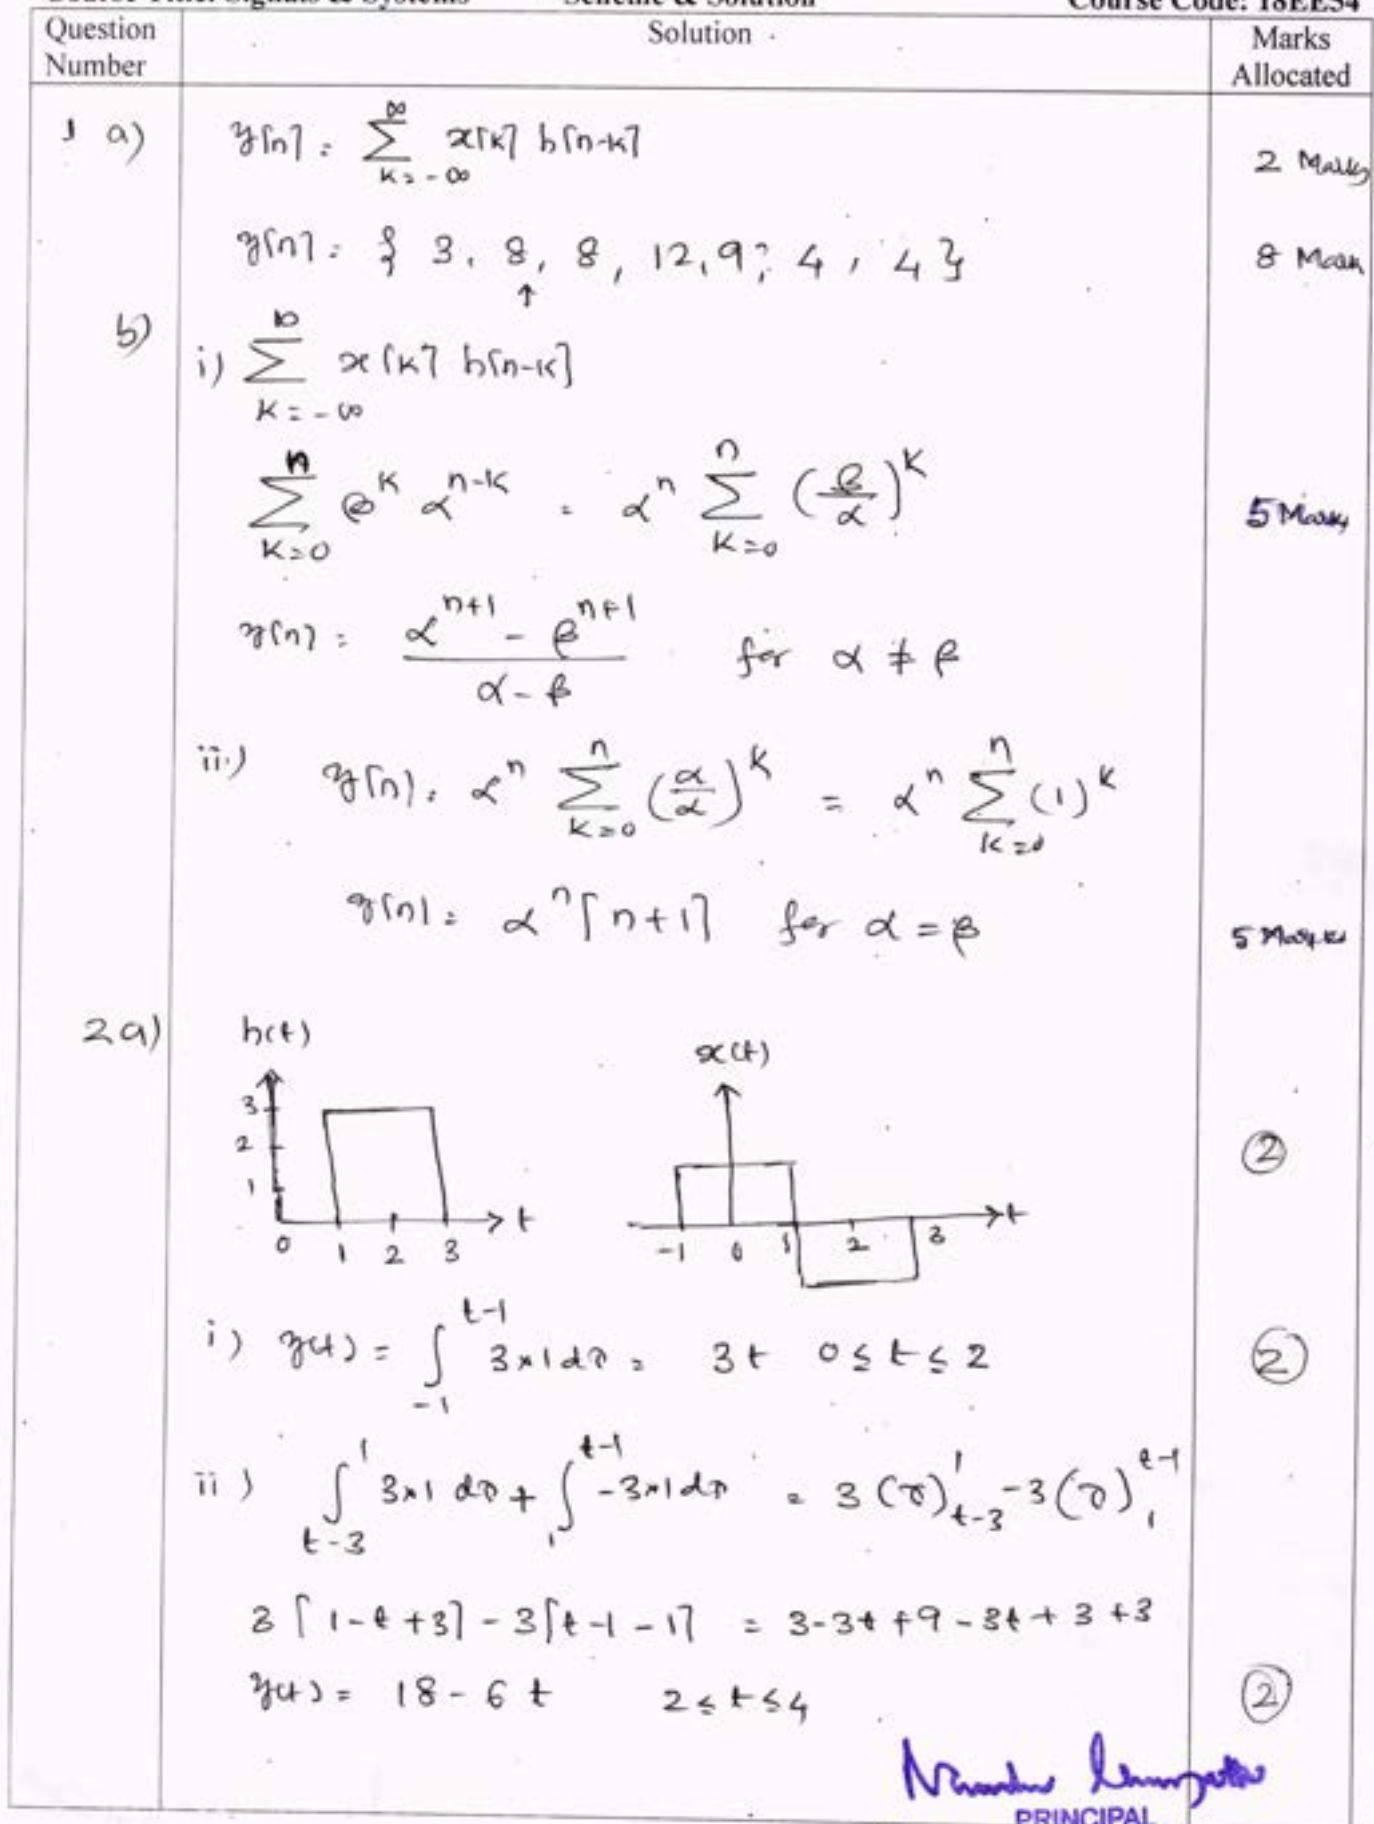 Course Title: Signals & Systems Scheme & Solution Course Code: 18EE54
Question Number Solution Marks Allocated
1 a) y[n] = ∑_{k=-∞}^{∞} x[k] h[n-k] 2 Marks
y[n] = { 3, 8, 8, 12, 9, 4, 4 } 8 Mark
↑
b) i) ∑_{k=-∞}^{∞} x[k] h[n-k]
∑_{k=0}^{n} β^k α^{n-k} = α^n ∑_{k=0}^{n} (β/α)^k 5 Marks
y[n] = (α^{n+1} - β^{n+1}) / (α - β) for α ≠ β
ii) y[n] = α^n ∑_{k=0}^{n} (α/α)^k = α^n ∑_{k=0}^{n} (1)^k
y[n] = α^n [n+1] for α = β 5 Marks
2a) h(t) x(t)
3
2 ②
1
0 1 2 3 t -1 0 1 2 3 t
i) y(t) = ∫_{-1}^{t-1} 3×1 dτ = 3t 0 ≤ t ≤ 2 ②
ii) ∫_{t-3}^{1} 3×1 dτ + ∫_{1}^{t-1} -3×1 dτ = 3(τ)_{t-3}^{1} - 3(τ)_{1}^{t-1}
3 [1-t+3] - 3[t-1-1] = 3-3t+9-3t+3+3
y(t) = 18 - 6t 2 ≤ t ≤ 4 ②
PRINCIPAL